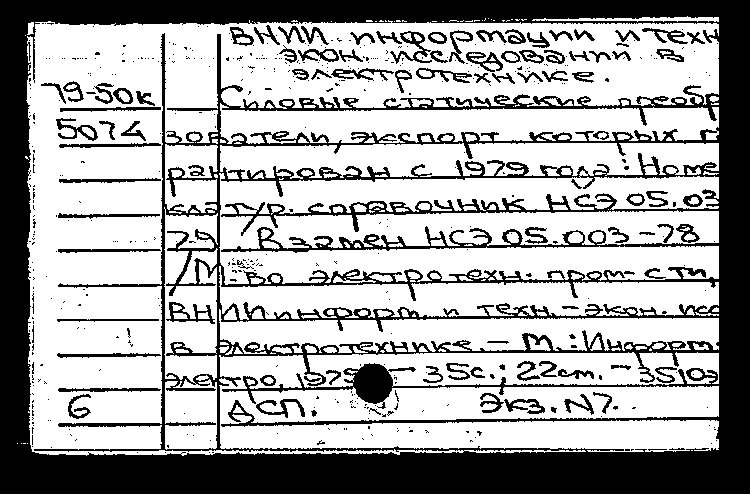 ВНИИ информации и техн
экон. исследований в
электротехнике.
79-50к Силовые статические преобр
5074 зователи, экспорт которых га
рантирован с 1979 года: Номе
клат/р. справочник НСЭ 05.03
79. Взамен НСЭ 05.003-78
/М-во электротехн. пром-сти,
ВНИИ информ. и техн.-экон. исс
в электротехнике. - М.: Информ
электро, 1979 - 35с.; 22см. - 3510э
6 ДСП. Экз. N7.